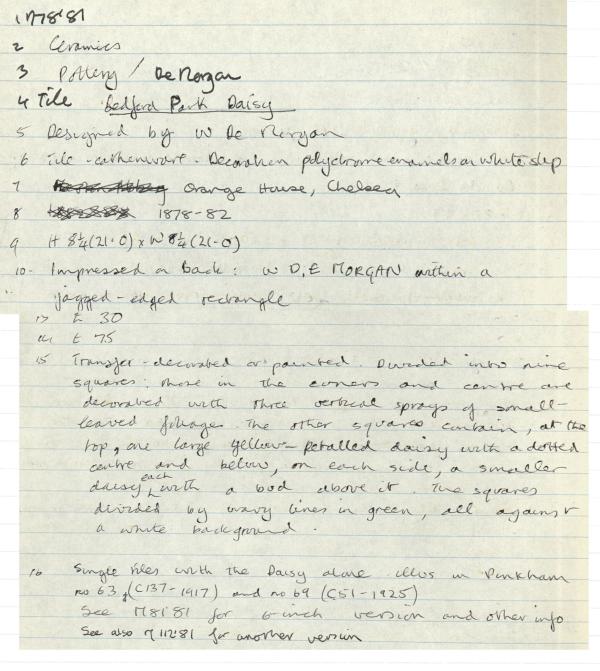 1 M78'81
2 Ceramics
3 Pottery / De Morgan
4 Tile Bedford Park Daisy
5 Designed by W De Morgan
6 Tile - earthenware. Decoration polychrome enamels on white slip
7 Orange House, Chelsea
8 1878-82
9 H 8¼ (21·0) x W 8¼ (21·0)
10 Impressed on Back: W D.E MORGAN within a
jagged-edged rectangle
13 £ 30
14 £ 75
15 Transfer-decorated or painted. Divided into nine
squares: those in the corners and centre are
decorated with three vertical sprays of small-
leaved foliage. The other squares contain, at the
top, one large yellow-petalled daisy with a dotted
centre and below, on each side, a smaller
daisy each with a bud above it. The squares
divided by wavy lines in green, all against
a white background.
16 Single tiles with the Daisy alone illus in Pinkham
no 63, (C137-1917) and no 69 (C51-1925)
See M81'81 for 6-inch version and other info
See also M112'81 for another version